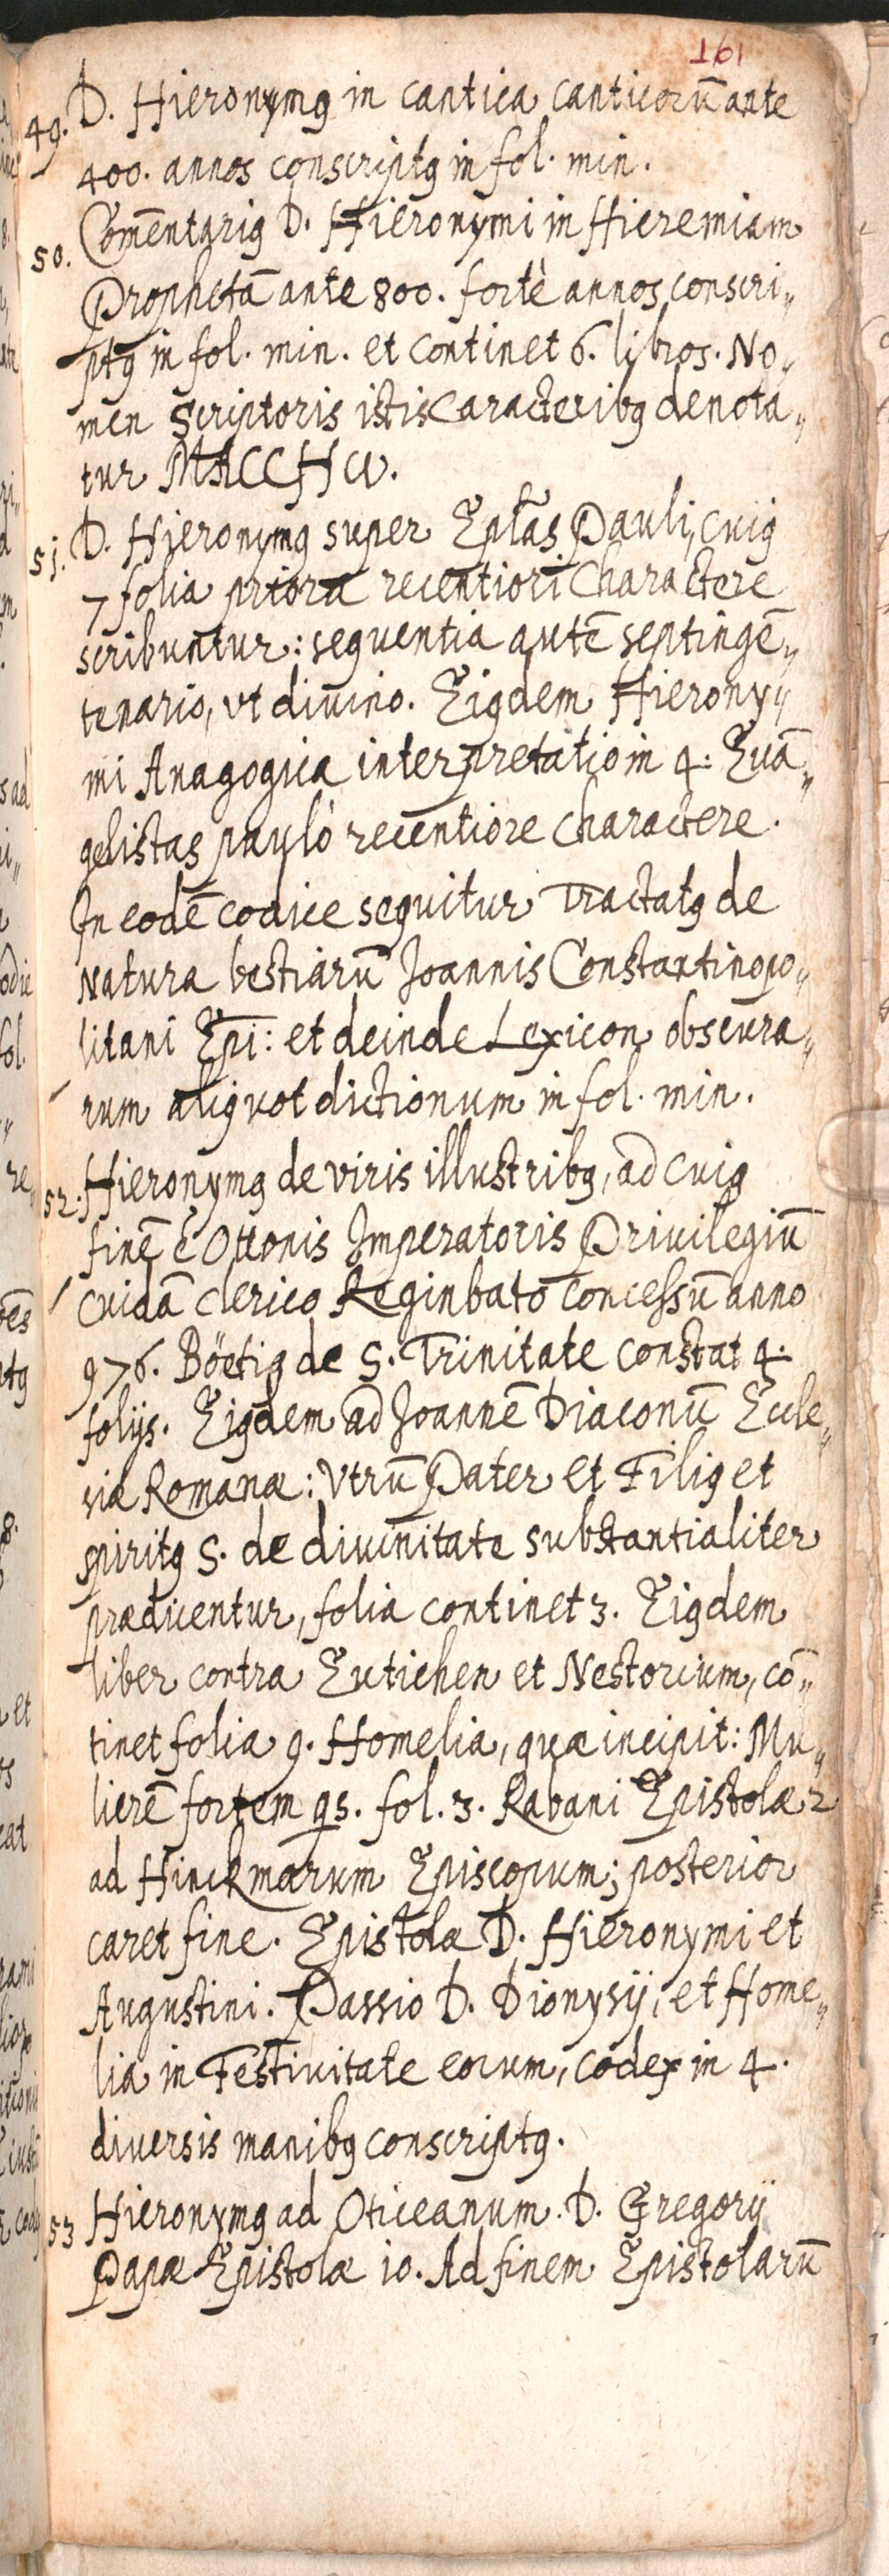 161
49. D. Hieronymꝰ in cantica canticorū ante
400. annos conscriptꝰ in fol. min.
50. Com̄entariꝰ D. Hieronymi in Hieremiam
Prophetā ante 800. fortè annos conscri„
ptꝰ in fol. min. et continet 6. libros. No„
men Scriptoris istis Caracteribꝰ denota„
tur MACCHW.
51. D. Hieronymꝰ super Epl̄as Pauli, cuiꝰ
7 folia priora recentiori Charactere
scribuntur: sequentia autē septingē„
tenario, vt divino. Eiꝰdem Hierony„
mi Anagogica interpretatio in 4. Euā„
gelistas paulò recentiore charactere.
In eodē codice sequitur Tractatꝰ de
Natura bestiarū Joannis Constantinopo„
litani Ep̄i: et deinde Lexicon obscura„
rum aliquot dictionum in fol. min.
52. Hieronymꝰ de viris illustribꝰ, ad cuiꝰ
finē ē Ottonis Imperatoris Privilegiū
cuidā clerico Reginbato concessū anno
976. Böetiꝰ de S. Trinitate constat 4.
folijs. Eiꝰdem ad Joannē Diaconū Eccle„
siæ Romanæ: Vtrū Pater et Filiꝰ et
spiritꝰ S. de divinitate substantialiter
prædicentur, folia continet 3. Eiꝰdem
liber contra Eutichen et Nestorium, cō„
tinet folia 9. Homelia, quæ incipit: Mu„
lierē fortem qs. fol. 3. Rabani Epistolæ 2
ad Hinckmarum Episcopum; posterior
caret fine. Epistolæ D. Hieronymi et
Augustini. Passio D. Dionysij, et Home„
lia in Festivitate eorum, codex in 4.
diversis manibꝰ conscriptꝰ.
53 Hieronymꝰ ad Oticeanum. D. Gregorij
Papæ Epistolæ 10. Ad finem Epistolarū